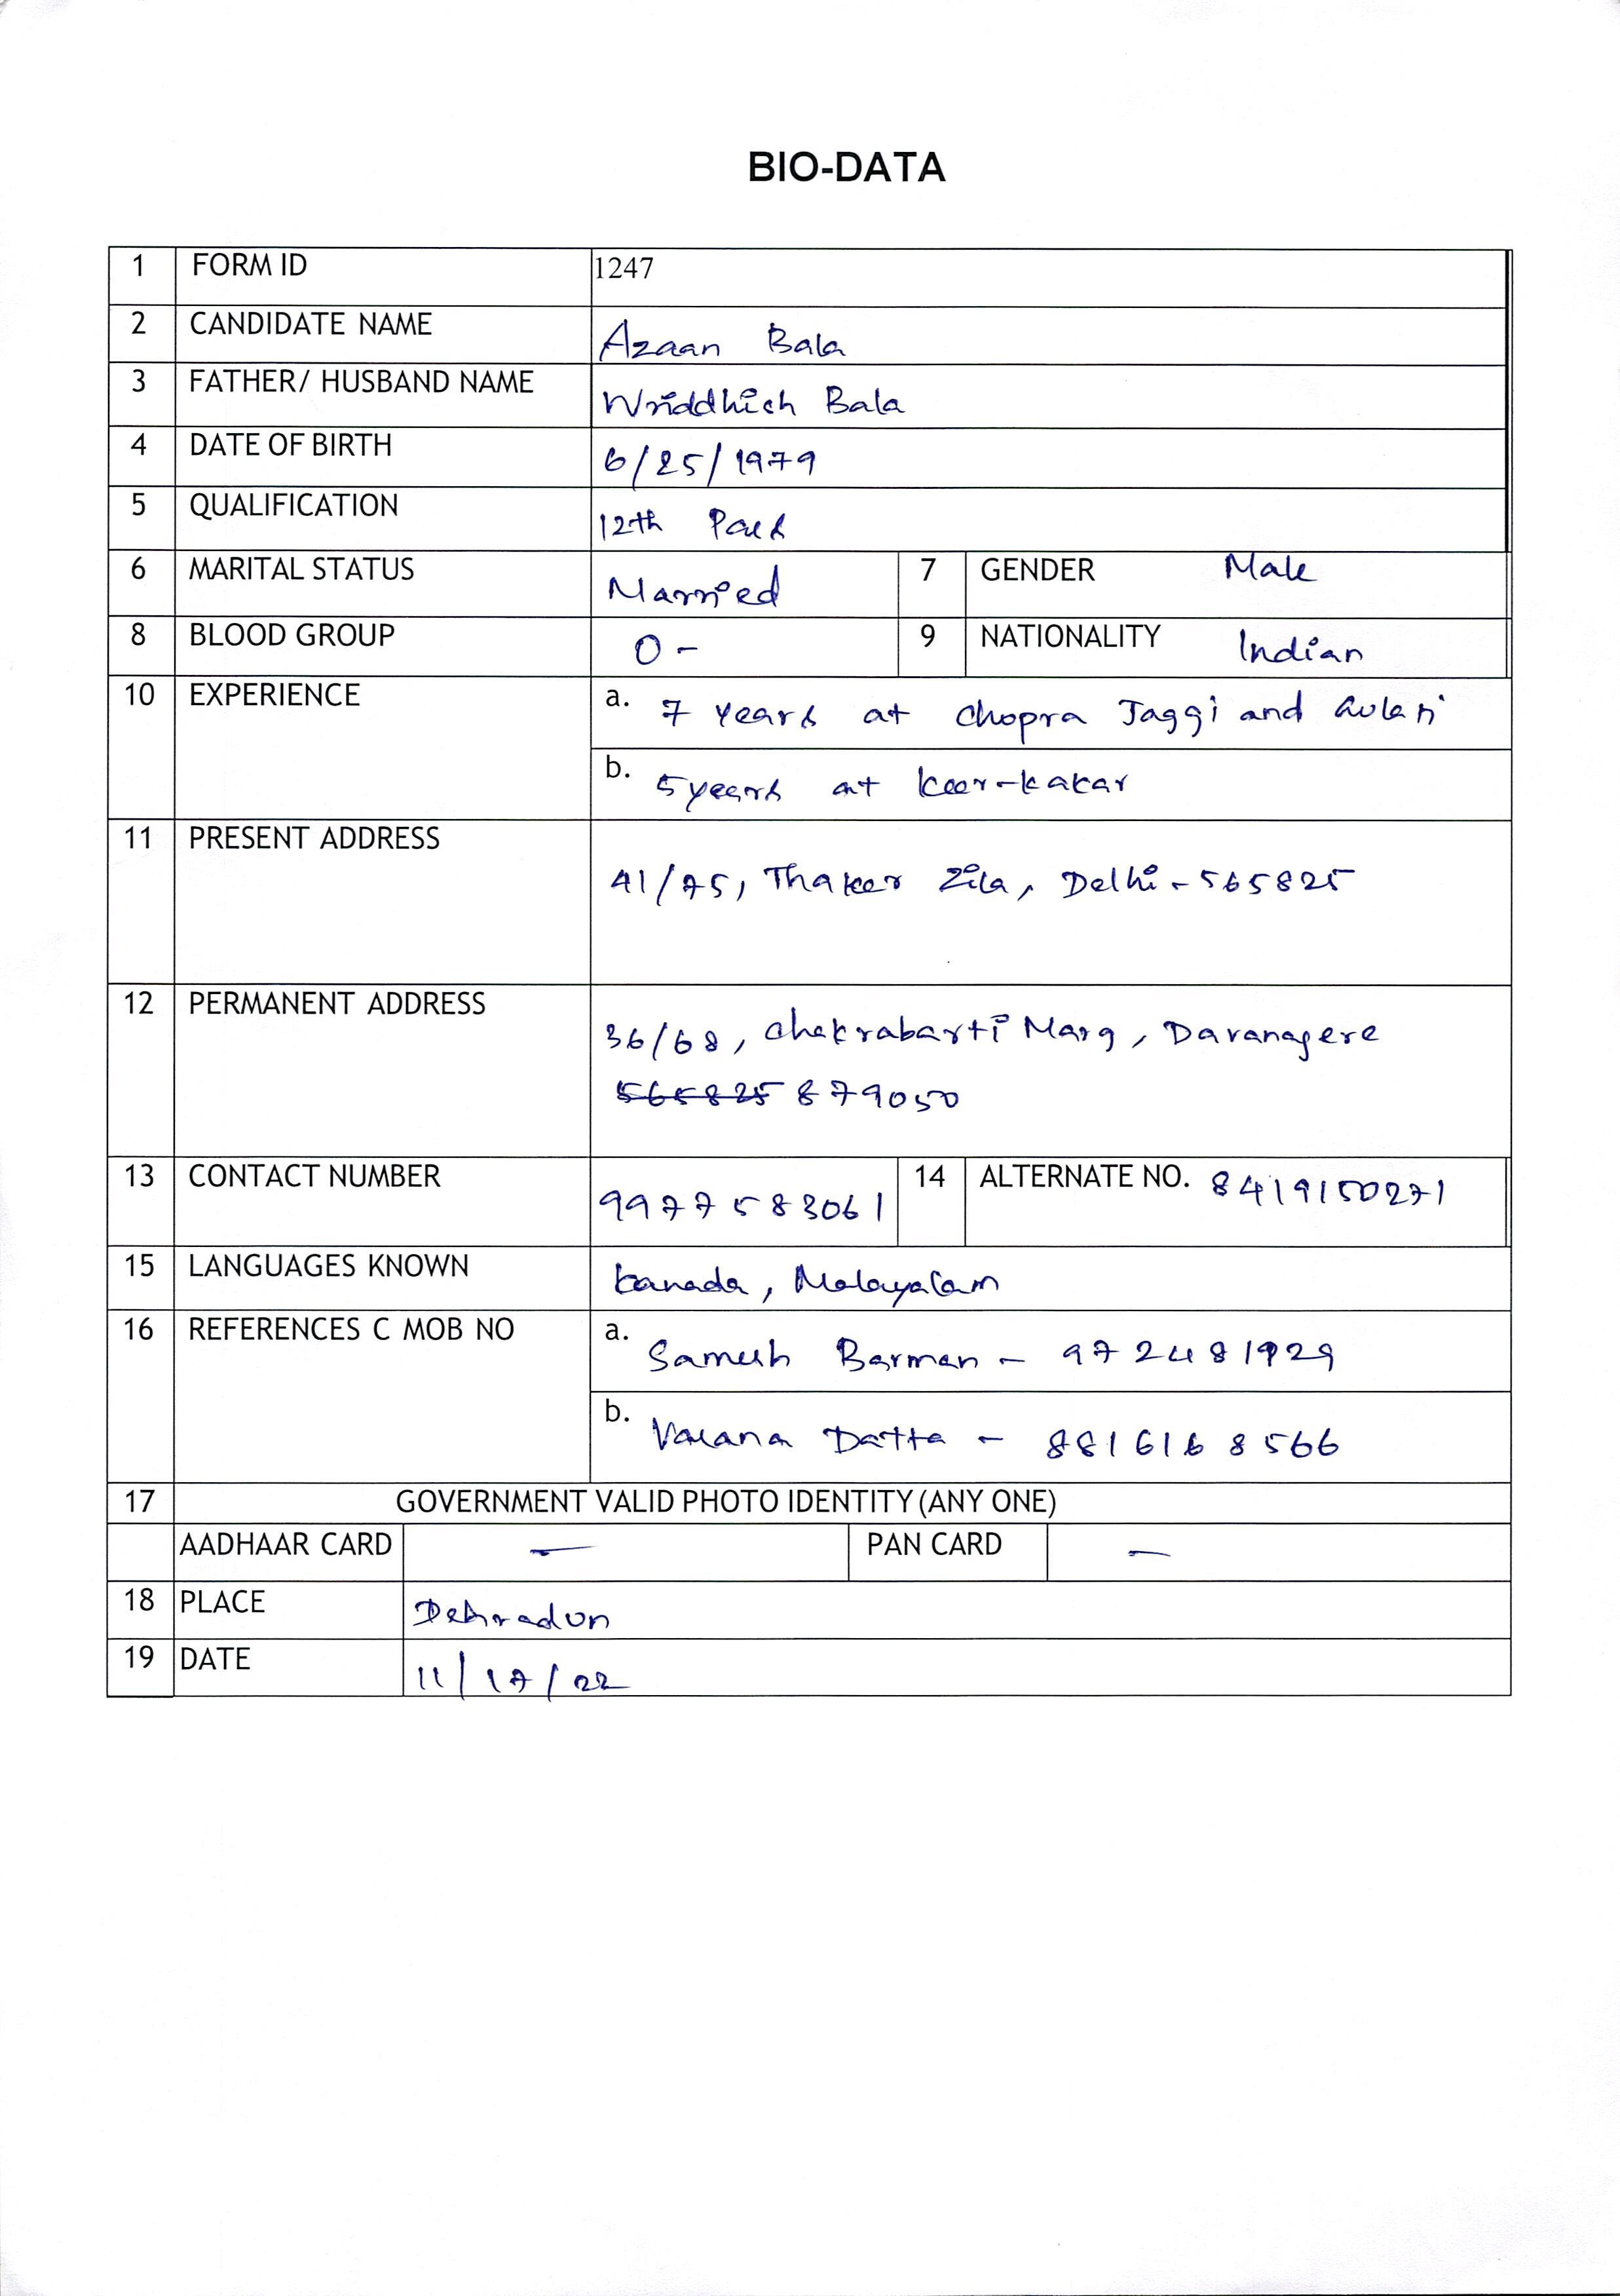 BIO-DATA
1 FORM ID 1247
2 CANDIDATE NAME Azaan Bala
3 FATHER/ HUSBAND NAME Wriddhish Bala
4 DATE OF BIRTH 6/25/1979
5 QUALIFICATION 12th Pass
6 MARITAL STATUS Married 7 GENDER Male
8 BLOOD GROUP O- 9 NATIONALITY Indian
10 EXPERIENCE a. 7 years at Chopra Jaggi and Gulati
b. 5 years at Keer-Kakar
11 PRESENT ADDRESS
41/75, Thaker Zila, Delhi - 565825
12 PERMANENT ADDRESS
36/68, Chakrabarti Marg, Davanagere
565825 879050
13 CONTACT NUMBER 9977583061 14 ALTERNATE NO. 8419150271
15 LANGUAGES KNOWN Kanada, Malayalam
16 REFERENCES C MOB NO a. Barman - 972481929
b. Datta - 8816168566
17 GOVERNMENT VALID PHOTO IDENTITY (ANY ONE)
AADHAAR CARD - PAN CARD -
18 PLACE Dehradun
19 DATE 11/17/22